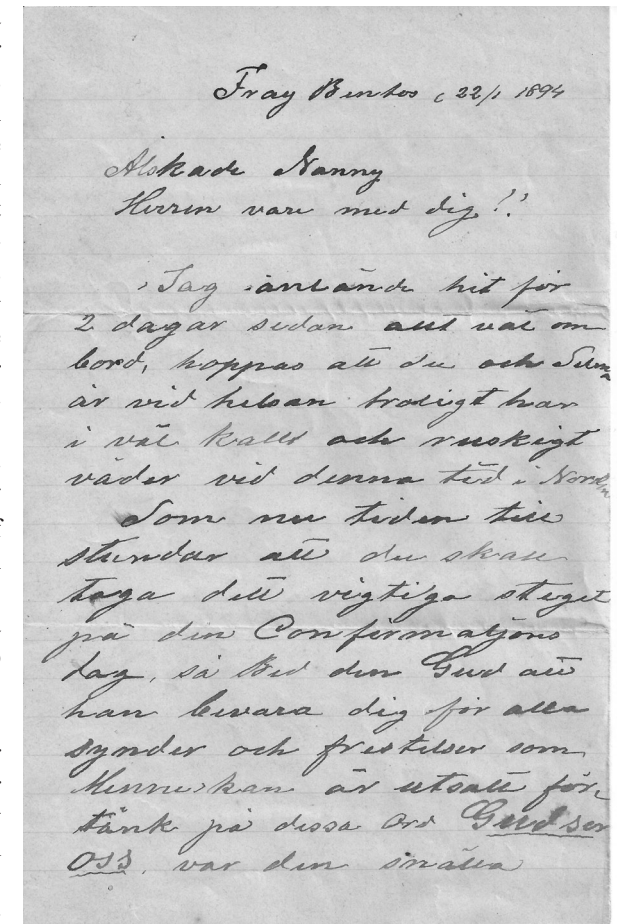 Fray Bentos 22/1 1894
Älskade Nanny
Herren vare med dig!!
Jag anlände hit för
2 dagar sedan allt väl om
bord, hoppas att du och Selma
är vid helsan troligt har
i väl kallt och ruskigt
väder vid denna tid i Norden
Som nu tiden till
stundar att du skall
taga dett vigtiga steget
på den Confirmatjons
dag, så Bed den Gud att
han bevara dig för alla
synder och frestelser som
Menneskan är utsatt för,
tänk på dessa Ord Gud ser
oss, var den snälla